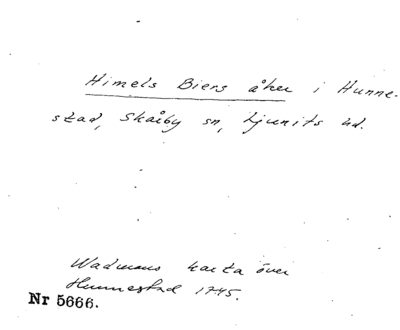 Himels Biers åker i Hunne-
stad, Skårby sn, Ljunits hd.
Wadmans karta över
Hunnestad 1745.
Nr 5666.